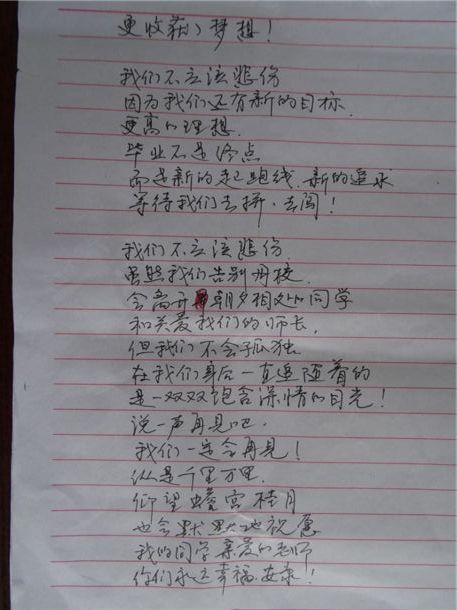 更收获了梦想！
我们不应该悲伤
因为我们还有新的目标.
更高的理想.
毕业不是终点
而是新的起跑线.新的追求
等待我们去拼·去闯！
我们不应该悲伤.
虽然我们告别母校.
会离开朝夕相处的同学
和关爱我们的师长,
但我们不会孤独.
在我们身后一直追随着的
是一双双饱含深情的目光！
说一声再见吧.
我们一定会再见！
纵是千里万里.
仰望蟾宫桂月
也会默默地祝愿
我的同学亲爱的老师
你们永远幸福.安康！